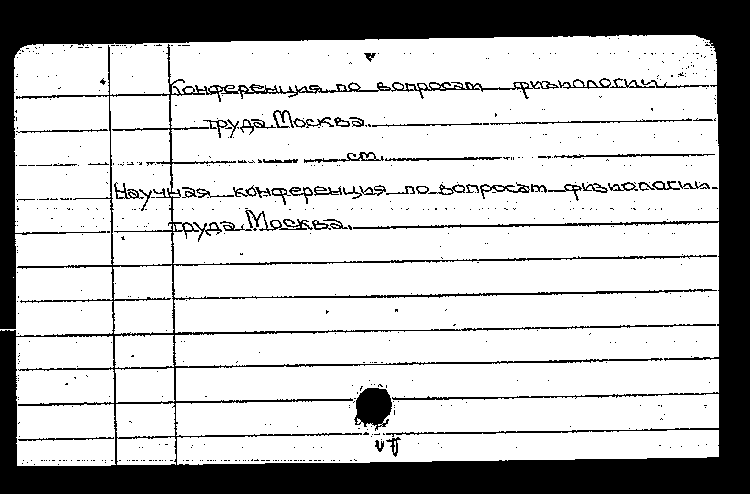 Конференция по вопросам физиологии
труда. Москва.
см.
Научная конференция по вопросам физиологии
труда. Москва.